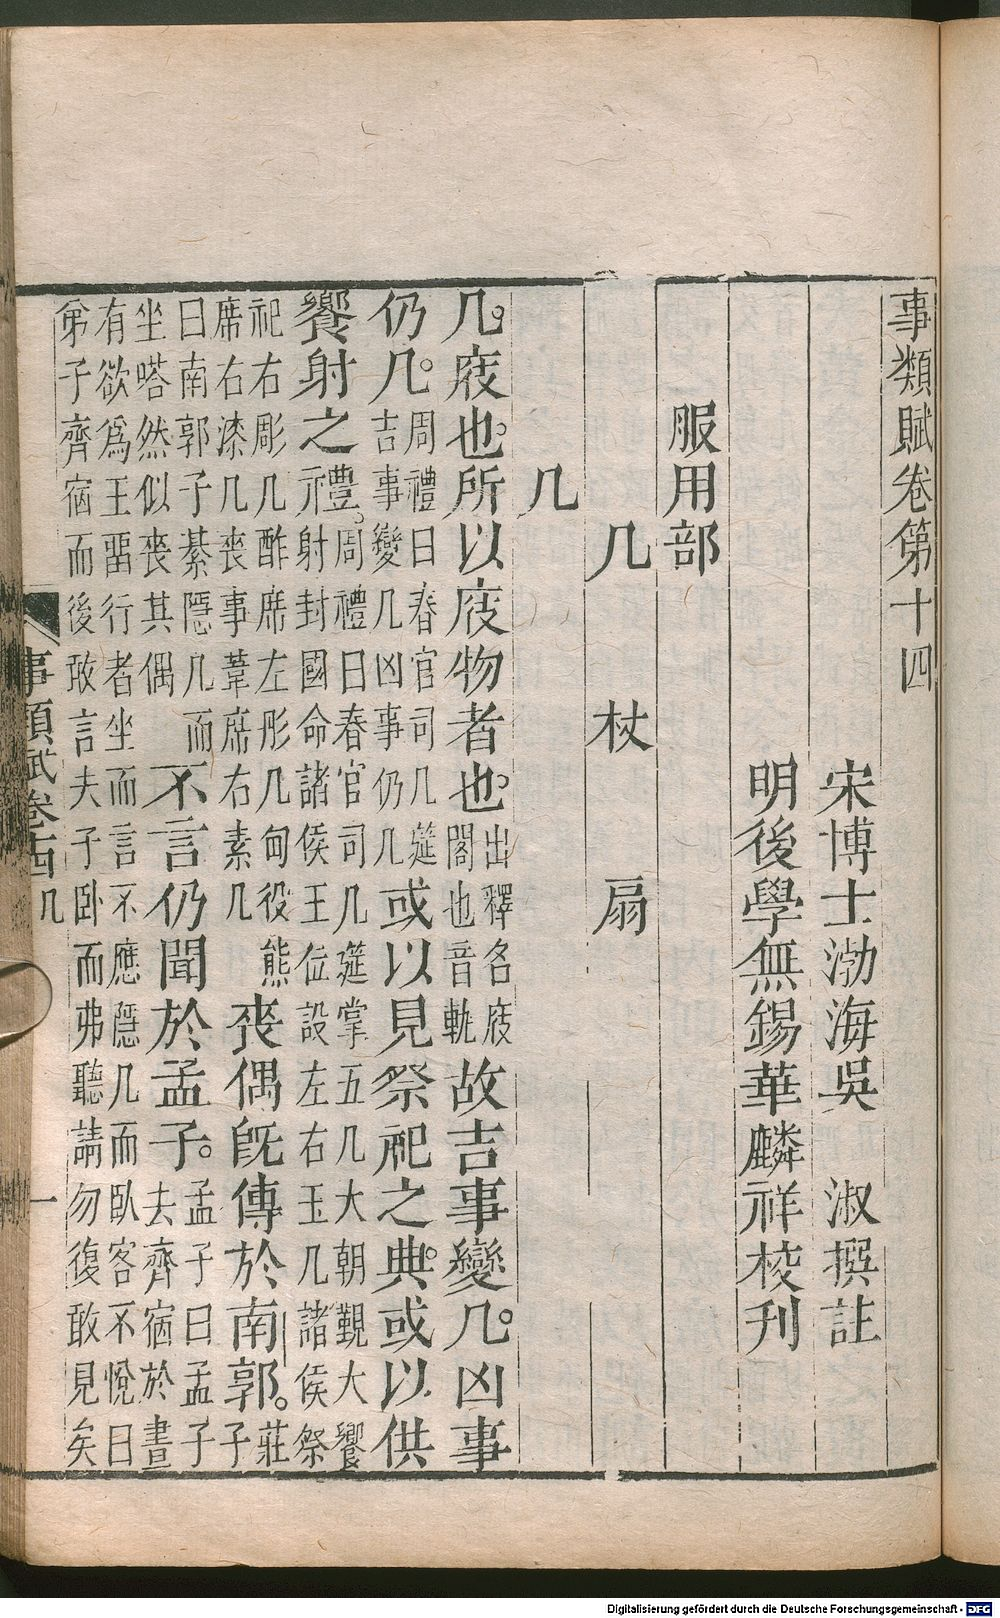 事類賦卷第十四
宋博士渤海吳 淑撰註
明後學無錫華麟祥校刊
服用部
几 杖 扇
几
几。庪也。所以庪物者也。出釋名庪
閣也音軌
故吉事變几。凶事
仍几。周禮曰春官司几筵
吉事變几凶事仍几
或以見祭祀之典。或以供
饗射之禮。周禮曰春官司几筵掌五几大朝覲大饗
射封國命諸侯王位設左右玉几諸侯祭
祀右彫几酢席左彤几甸役熊
席右漆几喪事葦席右素几
喪偶旣傳於南郭。莊
子
曰南郭子綦隱几而
坐嗒然似喪其偶
不言仍聞於孟子。孟子曰孟子
去齊宿於晝
有欲爲王畱行者坐而言不應隱几而臥客不悅曰
弟子齊宿而後敢言夫子臥而弗聽請勿復敢見矣
事類賦卷十四 几
一
Digitalisierung gefördert durch die Deutsche Forschungsgemeinschaft - DFG